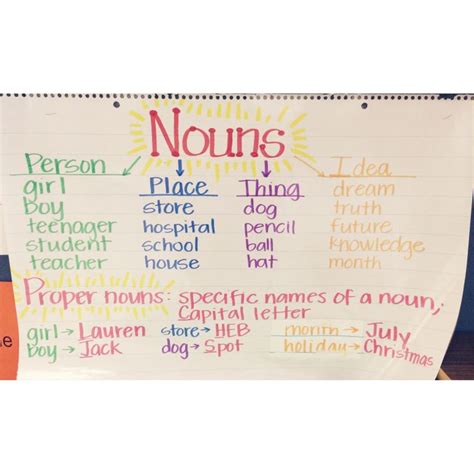 Nouns
Person Place Thing Idea
girl store dog dream
boy hospital pencil truth
teenager school ball future
student house hat knowledge
teacher month
Proper nouns: specific names of a noun;
capital letter
girl → Lauren store → HEB month → July
Boy → Jack dog → Spot holiday → Christmas
e